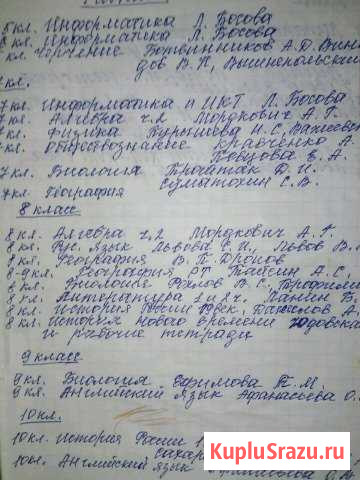 5 кл. Информатика Л. Босова
6 кл. Информатика Л. Босова
кл. Черчение Ботвинников А.Д. Вин
дов В.Н, Вышнепольский
7 кл.
7 кл. Информатика и ИКТ Л. Босова
7 кл. Алгебра ч.2 Мордкович А.Г.
7 кл. Физика Пурышева Н.С, Важеевс
7 кл. Обществознание Кравченко А.
Певцова Е.А.
7 кл. Биология Трайтак Д.И.
7 кл. География Суматохин С.В.
8 класс
8 кл. Алгебра ч.2 Мордкович А.Г.
8 кл. Рус. язык Львова С.И, Львов В.
8 кл. География В.П. Дронов
8-9 кл. География РТ Тайсин А.С.
8 кл. Биология Рохлов В.С. Трофимо
8 кл. Литература Ланин Б.
8 кл. История России 19 век, Данилов А.
8 кл. История нового времени Юдовская
и рабочие тетради
9 класс
9 кл. Биология Ефимова Т.М.
9 кл. Английский язык Афанасьева О.
10 кл.
10 кл. История России
Сахар
10 кл. Английский язык Афанасьева О.
KupluSrazu.ru